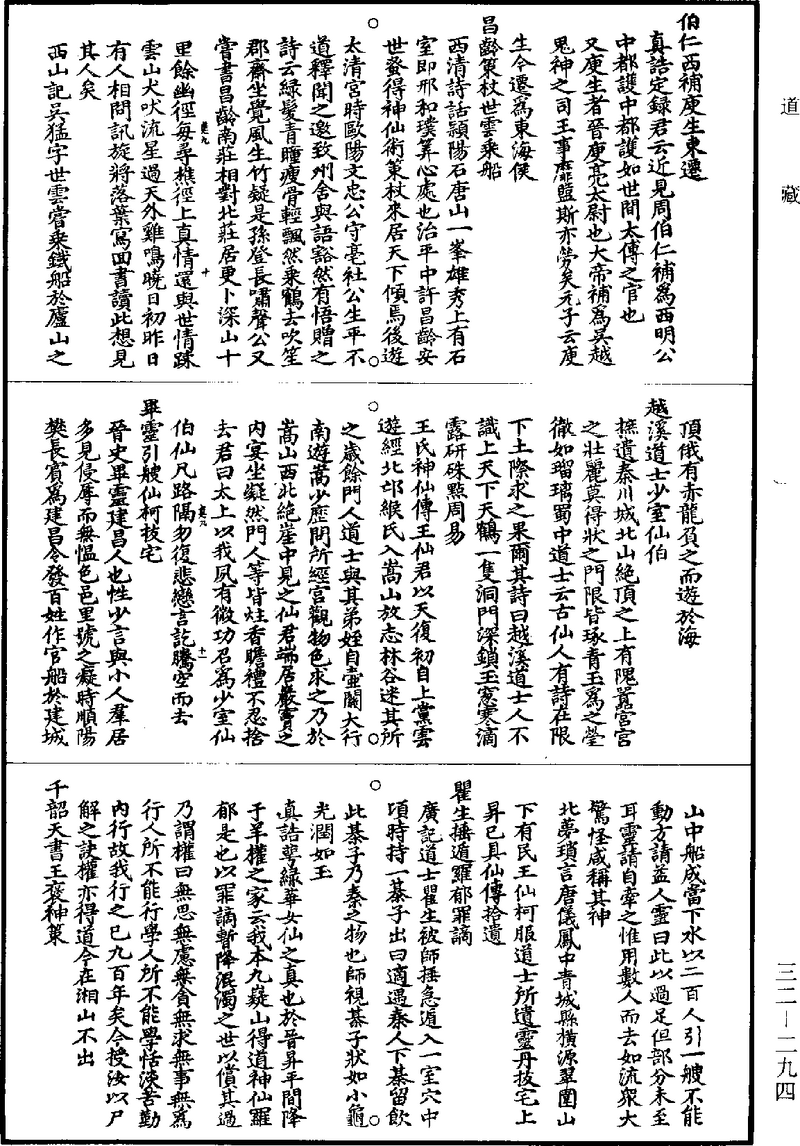 道藏
伯仁西補庾生東遷
真誥定録君云近見周伯仁補爲西明公
中都護中都護如世間太傅之官也
又庾生者晉庾亮太尉也大帝補爲吳越
鬼神之司王事靡盬斯亦勞矣元子云庾
生今遷爲東海侯
昌齡策杖世雲乗船
西清詩話潁陽石唐山一峯雄秀上有石
室即邢和璞筭心處也治平中許昌齡安
世蚤得神仙術策杖來居天下傾焉後遊
太清宮時歐陽文忠公守亳社公生平不
道釋聞之邀致州舍與語豁然有悟贈之
詩云緑髮青瞳瘦骨輕飄然乗鶴去吹笙
郡齋坐覺風生竹疑是孫登長嘯聲公又
嘗書昌齡南莊相對北莊居更卜深山十
里餘幽徑毎尋樵徑上真情還與世情踈
雲山犬吠流星過天外雞鳴曉日初昨日
有人相問訊旋將落葉寫回書讀此想見
其人矣
西山記吳猛字世雲嘗乗鐵船於廬山之
頂俄有赤龍負之而遊於海
越溪道士少室仙伯
摭遺秦川城北山絶頂之上有隗囂宮宮
之壯麗莫得狀之門限皆琢青玉爲之瑩
徹如瑠璃蜀中道士云古仙人有詩在限
下土際求之果爾其詩曰越溪道士人不
識上天下天鶴一隻洞門深鎖玉窻寒滴
露研硃點周易
王氏神仙傳王仙君以天復初自上黨雲
遊經北邙緱氏入嵩山放志林谷迷其所
之歲餘門人道士與其弟姪自壷關大行
南遊嵩少歷問所經宮觀物色求之乃於
嵩山西北絶崖中見之仙君端居巖竇之
内宴坐凝然門人等皆炷香瞻禮不忍捨
去君曰太上以我夙有微功召爲少室仙
伯仙凡路隔勿復悲戀言訖騰空而去
畢靈引艘仙柯拔宅
晉史畢靈建昌人也性少言與小人羣居
多見侵辱而無愠色邑里號之癡時順陽
樊長賓爲建昌令發百姓作官船於建城
山中船成當下水以二百人引一艘不能
動方請益人靈曰此以過足但部分未至
耳靈請自牽之惟用數人而去如流衆大
驚怪咸稱其神
北夢瑣言唐儀鳳中青城縣横源翠圍山
下有民王仙柯服道士所遺靈丹拔宅上
昇已具仙傳拾遺
瞿生捶遁羅郁罪謫
廣記道士瞿生被師捶急遁入一室穴中
頃時持一棊子出曰適遇秦人下棊留飲
此棊子乃秦之物也師視棊子狀如小龜
光潤如玉
真誥蕚緑華女仙之真也於晉昇平間降
于羊權之家云我本九嶷山得道神仙羅
郁是也以罪謫暫降混濁之世以償其過
乃謂權曰無思無慮無貪無求無事無爲
行人所不能行學人所不能學恬淡苦勤
内行故我行之已九百年矣今授汝以尸
解之訣權亦得道今在湘山不出
千韶天書王裒神策
三二—二九四